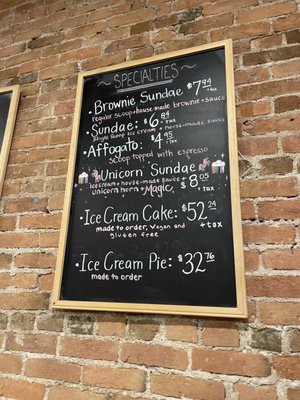 ~SPECIALTIES~
• Brownie Sundae $7.94 +tax
regular scoop+house made brownie+sauce
• Sundae: $6.84 +tax
single 8ump ice cream + house-made sauce
• Affogato: $4.95 +tax
scoop topped with espresso
Unicorn Sundae
ice cream + house-made sauce +
unicorn horn + Magic, $8.05 +tax
• Ice Cream Cake: $52.24 +tax
made to order, vegan and
gluten free
• Ice Cream Pie: $32.76
made to order